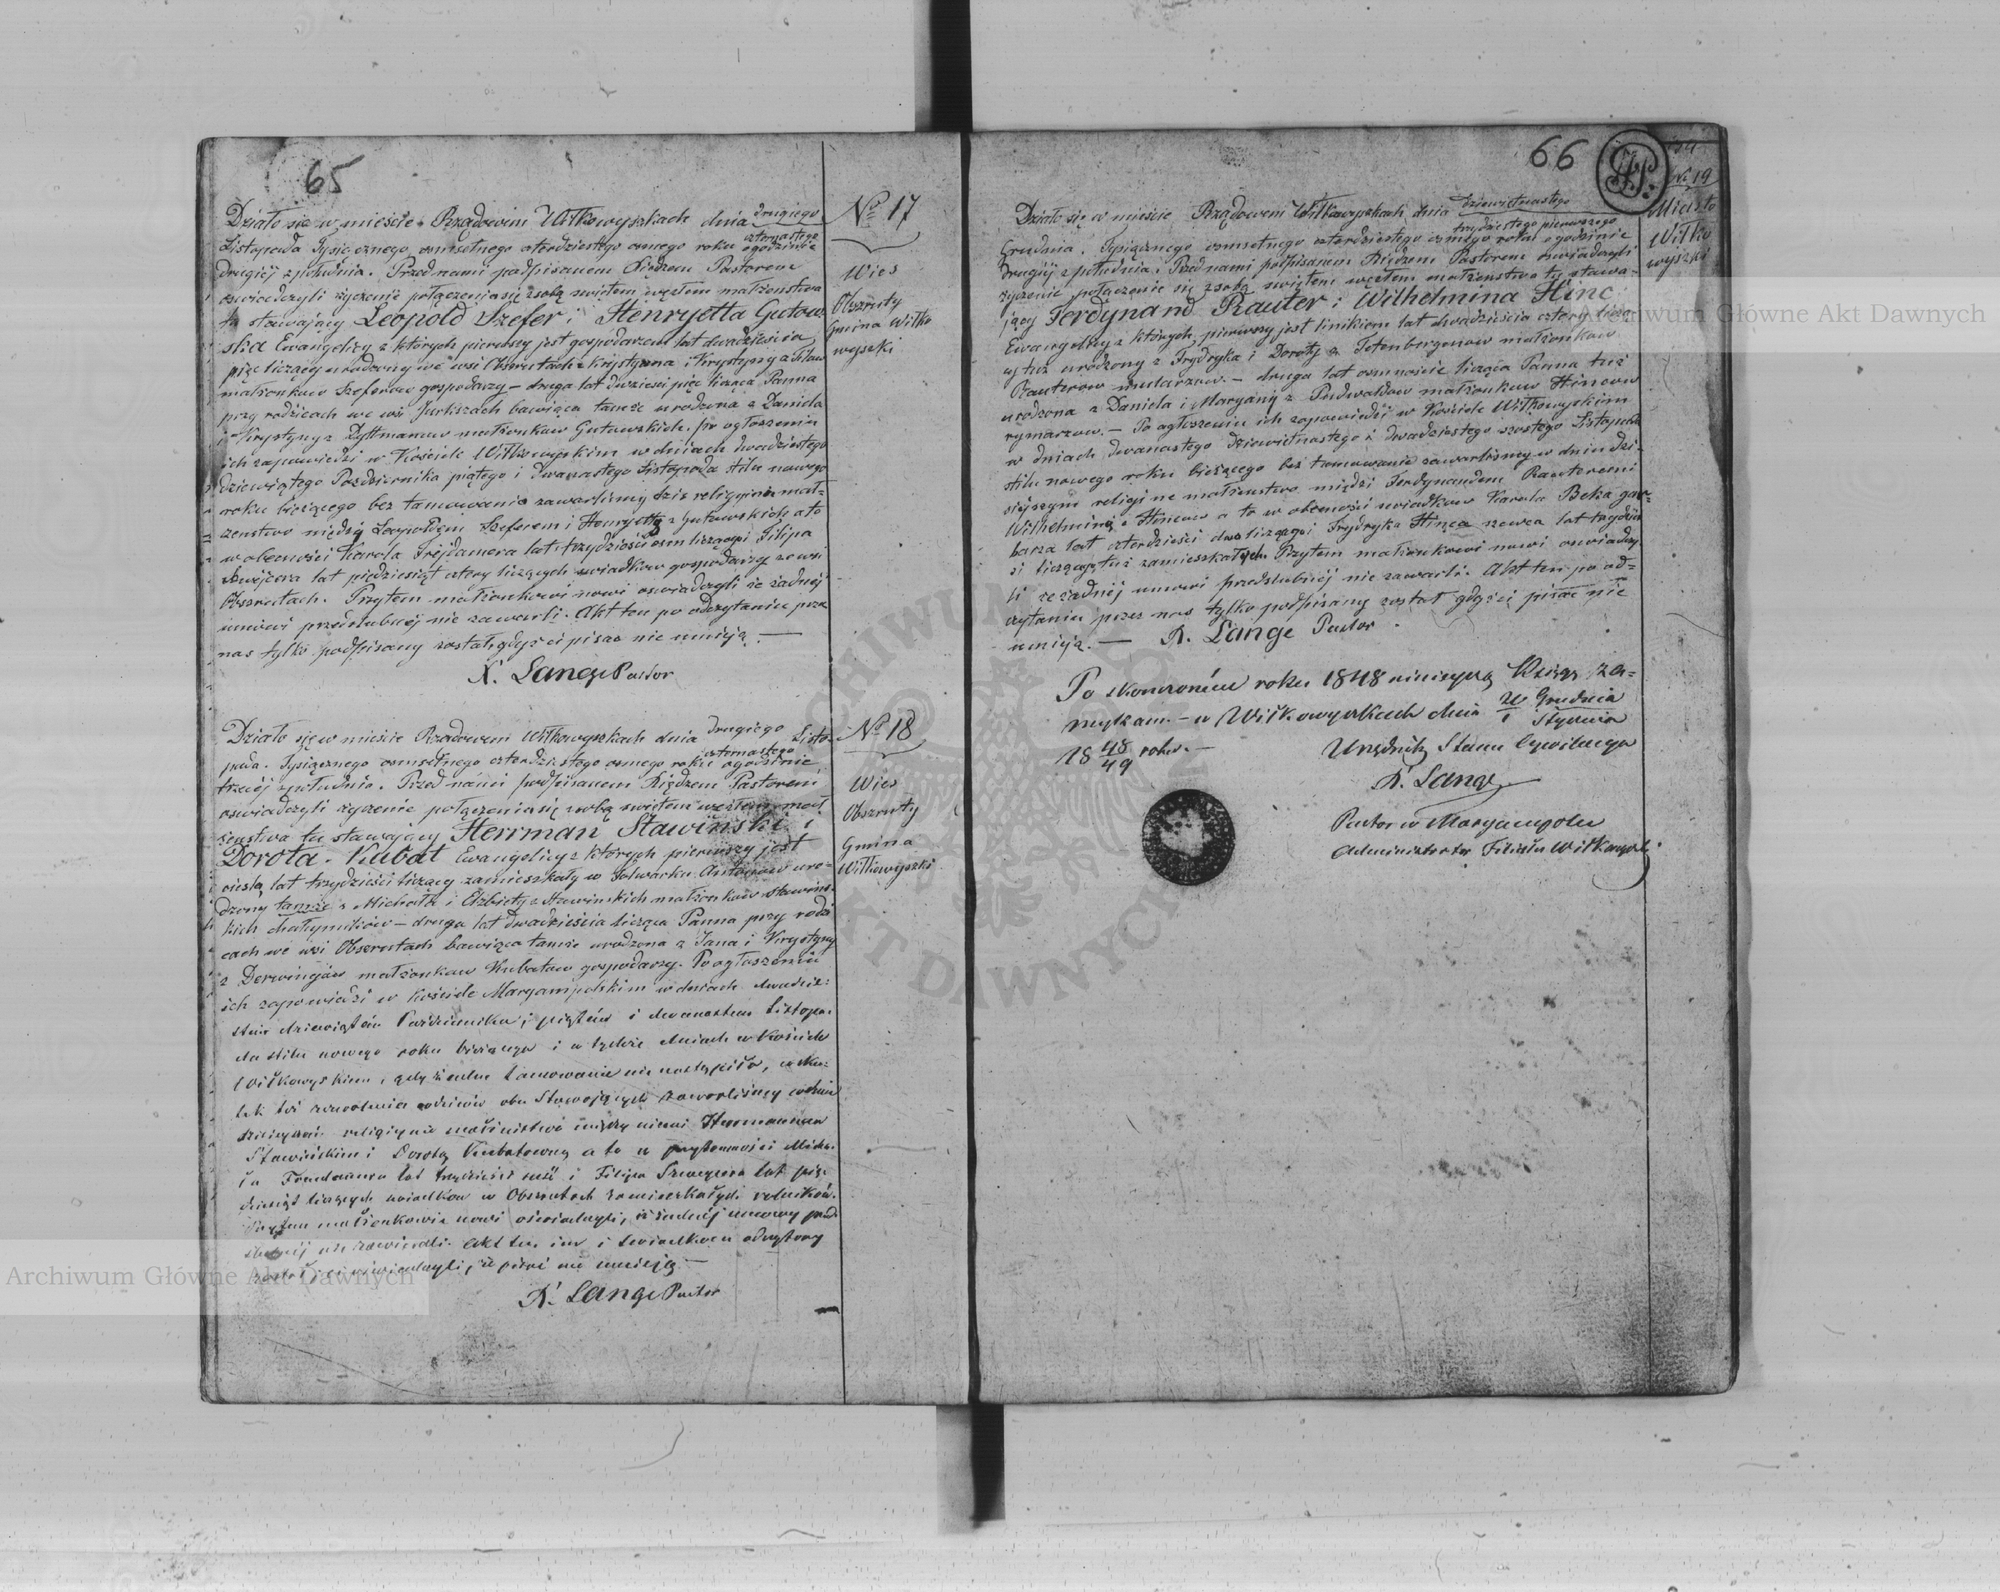 65
Nº 17
Wieś
Obszruty
Gmina Wiłko
wyszki
Działo się w mieście Rządowem Wiłkowyszkach dnia drugiego
czternastego
Listopada Tysiącznego osmsetnego czterdziestego osmego roku o godzinie
drugiej z południa. Przed nami podpisanem Xiędzem Pastorem
oświadczyli życzenie połączenia się z sobą świętem węzłem małżeństwa
tu stawający Leopold Szefer i Henryetta Gutow
ska Ewangelicy z których pierwszy jest gospodarzem lat dwadzieścia
pięć liczący urodzony we wsi Obszrutach z Krystyana i Krystyny z
małżonków Szeferów gospodarzy — druga lat dwadzieścia pięć licząca Panna
przy rodzicach we wsi Jurkszach bawiąca tamże urodzona z Daniela
i Krystyny z Dyttmanów małżonków Gutowskich. Po ogłoszeniu
ich zapowiedzi w Kościele Wiłkowyskim w dniach dwudziestego
dziewiątego Października piątego i dwunastego Listopada stilu nowego
roku bieżącego bez tamowania zawarliśmy dziś religijnie mał-
żeństwo między Leopoldem Szeferem i Henryettą z Gutowskich a to
w obecności Karola Frejdamera lat trzydzieści osm liczącego i Filipa
Szwejcera lat piędziesiąt cztery liczących świadków gospodarzy ze wsi
Obszrutach. Przytem małżonkowie nowi oświadczyli że żadnej
umowy przedślubnej nie zawarli. Akt ten po odczytaniu przez
nas tylko podpisany został, gdyż ci pisać nie umieją. —
X. Lange Pastor
Nº 18
Wieś
Obszruty
Gmina
Wiłkowyszki
Działo się w mieście Rządowem Wiłkowyszkach dnia drugiego Listo-
czternastego
pada Tysiącznego osmsetnego czterdziestego osmego roku o godzinie
trzeciej z południa. Przed nami podpisanem Xiędzem Pastorem
oświadczyli życzenie połączenia się z sobą świętem węzłem mał
żeństwa tu stawający Herrman Stawinski i
Dorota Kubat Ewangelicy z których pierwszy jest
cieślą lat trzydzieści liczący zamieszkały w Folwarku Antonowo uro-
dzony tamże z Michała i Elżbiety z małżonków Stawins-
kich — druga lat dwadzieścia licząca Panna przy rodzi
cach we wsi Obszrutach bawiąca tamże urodzona z Jana i Krystyny
z małżonków Kubatów gospodarzy. Po ogłoszeniu
ich zapowiedzi w Kościele Maryampolskim w dniach dwudzie-
stym dziewiątém Października; piątém i dwunastem Listopa-
da stilu nowego roku bieżącego i w tychże dniach w Kościele
Wiłkowyskiem, gdy żadne tamowanie nie nastąpiło, w sku-
tek też zezwolenia rodziców obu Stawających zawarliśmy w dniu
dzisiejszém religijne małżeństwo między niemi Herrmannem
Stawińskim i Dorotą Kubatówną a to w przytomności Micha-
ła lat trzydzieści sześć i Filipa Szwejcera lat pię-
dziesiąt liczących świadków w Obszrutach zamieszkałych rolników.
Przytem małżonkowie nowi oświadczyli, iż żadnéj umowy przed-
ślubnéj nie zawierali. Akt ten im i świadkom odczytany
został, ci oświadczyli, iż pisać nie umieją —
X. Lange Pastor
66
Nº 19
Miasto
Wiłko
wyszki
Działo się w mieście Rządowem Wiłkowyszkach dnia dziewiętnastego
trzydziestego pierwszego
Grudnia. Tysiącznego osmsetnego czterdziestego osmego roku o godzinie
drugiej z południa. Przed nami podpisanem Xiędzem Pastorem oświadczyli
życzenie połączenia się z sobą świętem węzłem małżeństwa tu stawa-
jący Ferdynand Rauter i Wilhelmina Hinc
Ewangelicy z których pierwszy jest lat dwadzieścia cztery licz-
ący tuż urodzony z Frydryka i Doroty z Tetenbergerów małżonków
Rauterów mularzów. — druga lat osmnaście licząca Panna tuż
urodzona z Daniela i Maryany z Pudwaldów małżonków Hinców
rymarzów. — Po ogłoszeniu ich zapowiedzi w Kościele Wiłkowyskim
w dniach dwunastego dziewiętnastego i dwudziestego szóstego Listopada
stilu nowego roku bieżącego bez tamowania zawarliśmy w dniu dzi-
siejszym religijne małżeństwo między Ferdynandem Rauterem i
Wilhelminą z Hinców a to w obecności świadków Karola Beka gar-
barza lat czterdzieści dwa liczącego i Frydryka Hinca szewca lat trzydzie
ści liczącego, tuż zamieszkałych. Przytem małżonkowie nowi oświadczy-
li że żadnéj umowy przedślubnéj nie zawarli. Akt ten po od-
czytaniu przez nas tylko podpisany został gdyż ci pisać nie
umieją. — X. Lange Pastor.
Po skończeniu roku 1848 niniejszą Księgę za-
mykam. — w Wiłkowyszkach dnia 20 Grudnia
1 Stycznia
18 48/49 roku. —
Urzędnik Stanu Cywilnego
X. Lange
Pastor w Maryampolu
Administrator Filiału Wiłkowyszki
Archiwum Główne Akt Dawnych
Archiwum Główne Akt Dawnych
ARCHIWUM GŁÓWNE AKT DAWNYCH